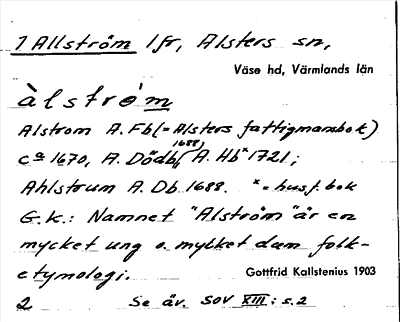 1 Allström lfr, Alsters sn,
Väse hd, Värmlands län
àlstróm
Alstrom A. Fb (= Alsters fattigmansbok)
ca 1670, A. Dödb (1688), A. Hb* 1721;
Ahlstrum A. Db. 1688. * = husf. bok
G.K.: Namnet "Alström" är en
mycket ung o. mycket dum folk-
etymologi.
Gottfrid Kallstenius 1903
2 Se äv. SOV XIII: s. 2